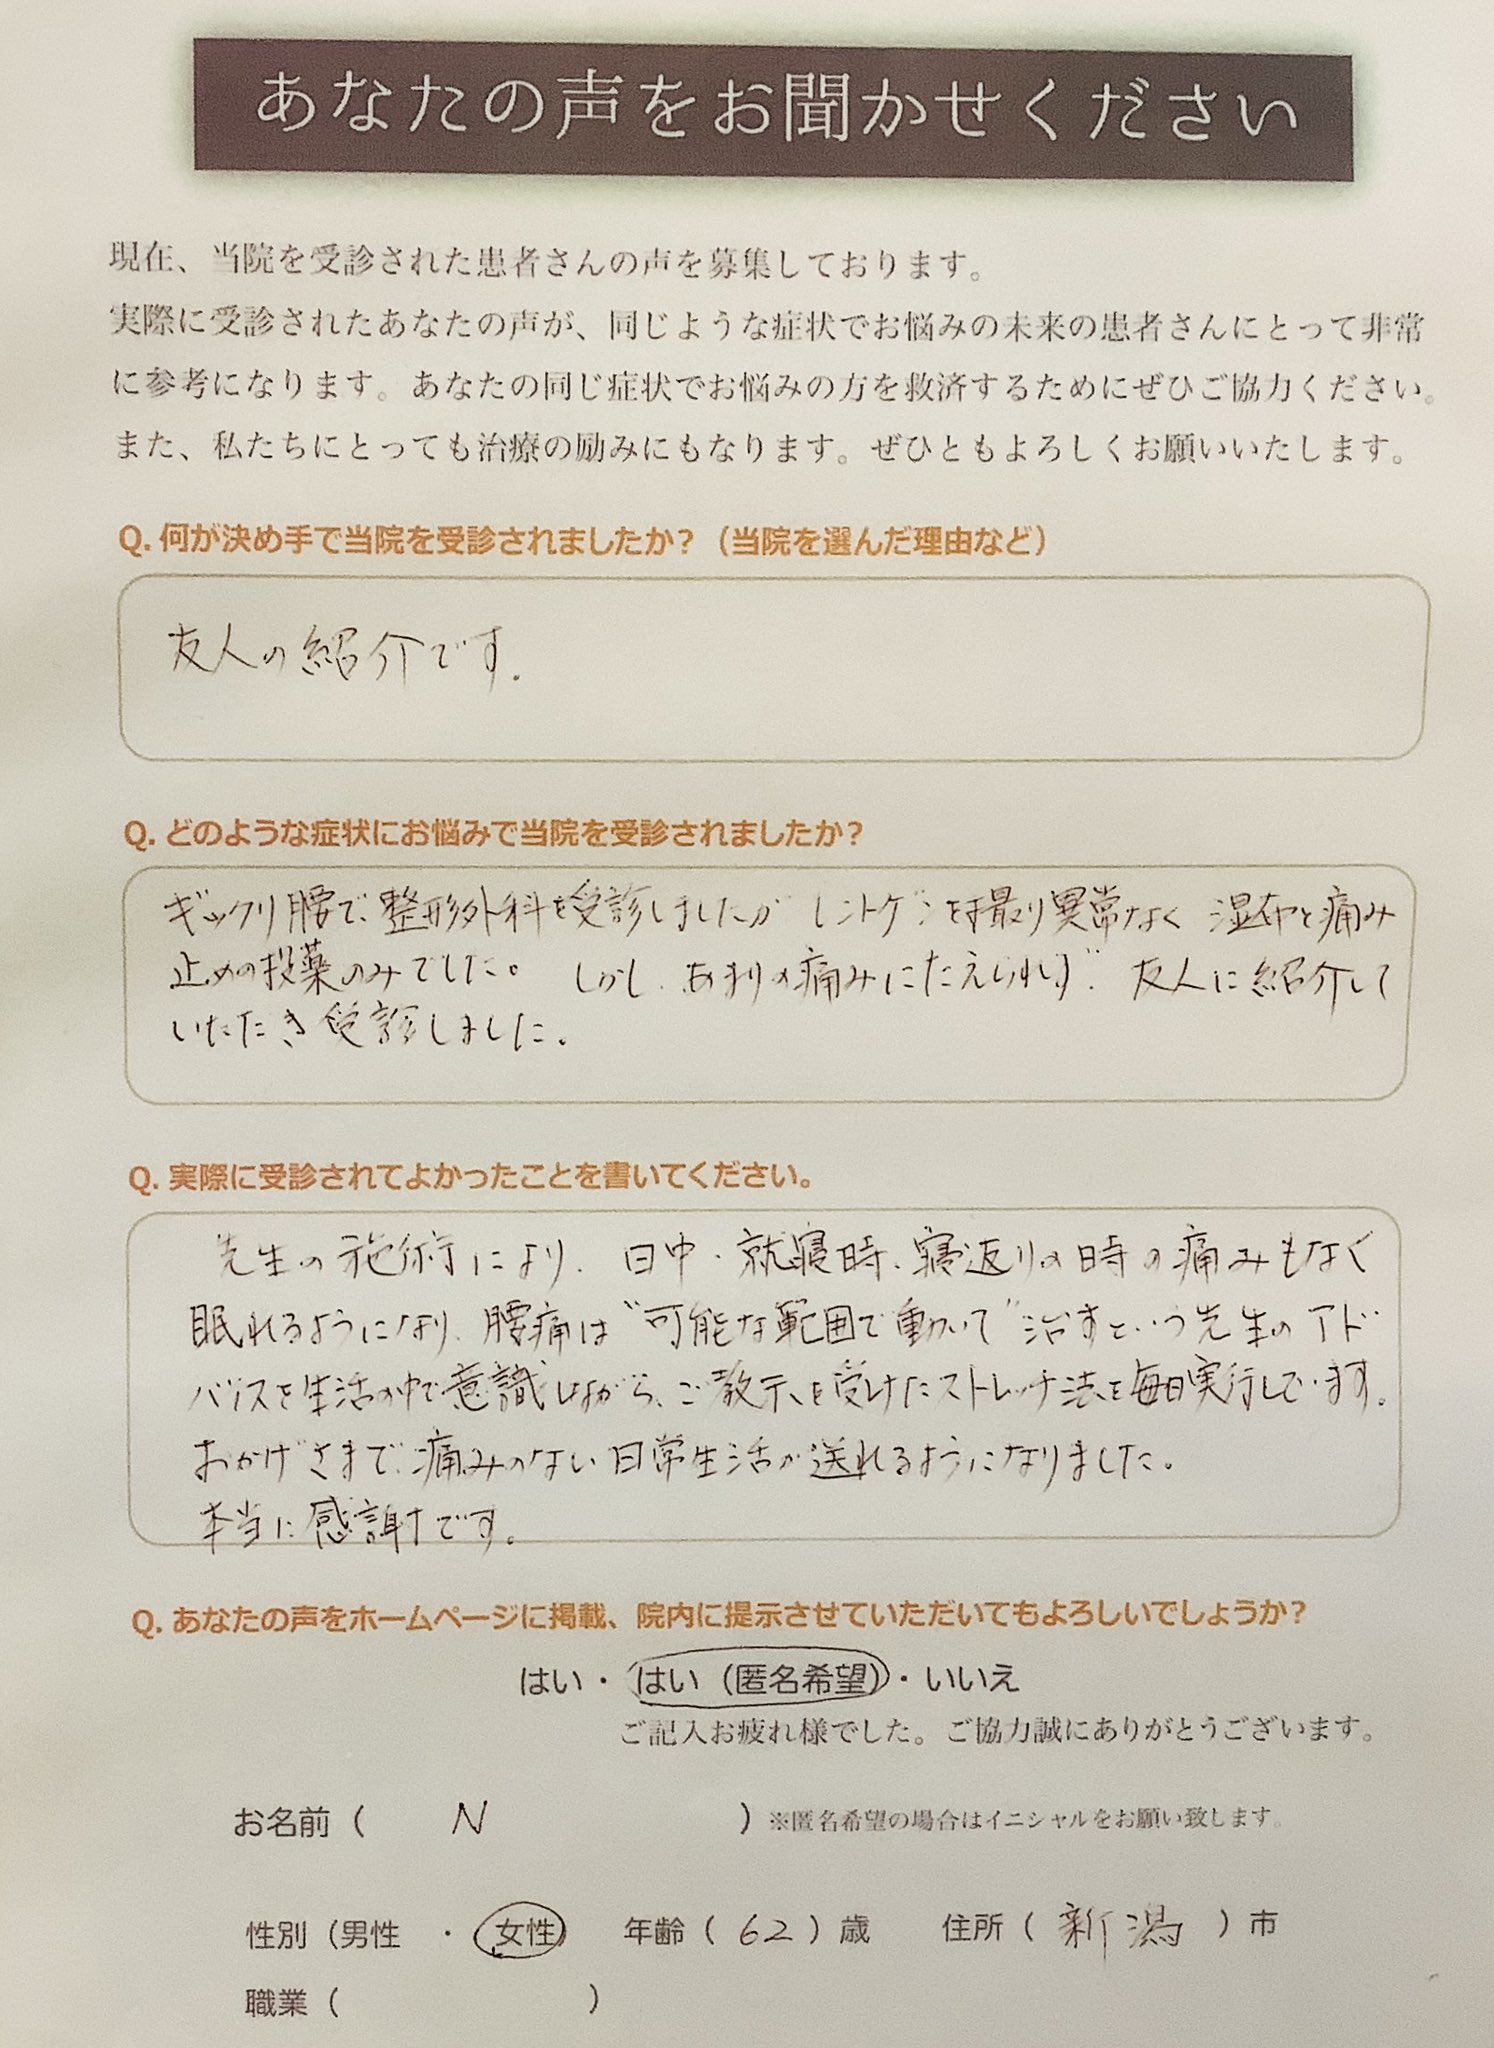 あなたの声をお聞かせください
現在、当院を受診された患者さんの声を募集しております。
実際に受診されたあなたの声が、同じような症状でお悩みの未来の患者さんにとって非常
に参考になります。あなたの同じ症状でお悩みの方を救済するためにぜひご協力ください。
また、私たちにとっても治療の励みにもなります。ぜひともよろしくお願いいたします。
Q. 何が決め手で当院を受診されましたか？（当院を選んだ理由など）
友人の紹介です.
Q. どのような症状にお悩みで当院を受診されましたか？
ギックリ腰で、整形外科を受診しましたが レントゲンを撮り異常なく 湿布と痛み
止めの投薬のみでした。 しかし、あまりの痛みにたえられず、友人に紹介して
いただき受診しました.
Q. 実際に受診されてよかったことを書いてください。
先生の施術により、日中、就寝時、寝返りの時の痛みもなく
眠れるようになり、腰痛は“可能な範囲で動いて”治すという先生のアド
バイスを生活の中で意識しながら、ご教示を受けたストレッチ法を毎日実行しています.
おかげさまで、痛みのない日常生活が送れるようになりました.
本当に感謝です。
Q. あなたの声をホームページに掲載、院内に提示させていただいてもよろしいでしょうか？
はい・はい（匿名希望）・いいえ
ご記入お疲れ様でした。ご協力誠にありがとうございます。
お名前（ N ）※匿名希望の場合はイニシャルをお願い致します。
性別（男性 ・ 女性） 年齢（ 62 ）歳 住所（ 新潟 ）市
職業（ ）